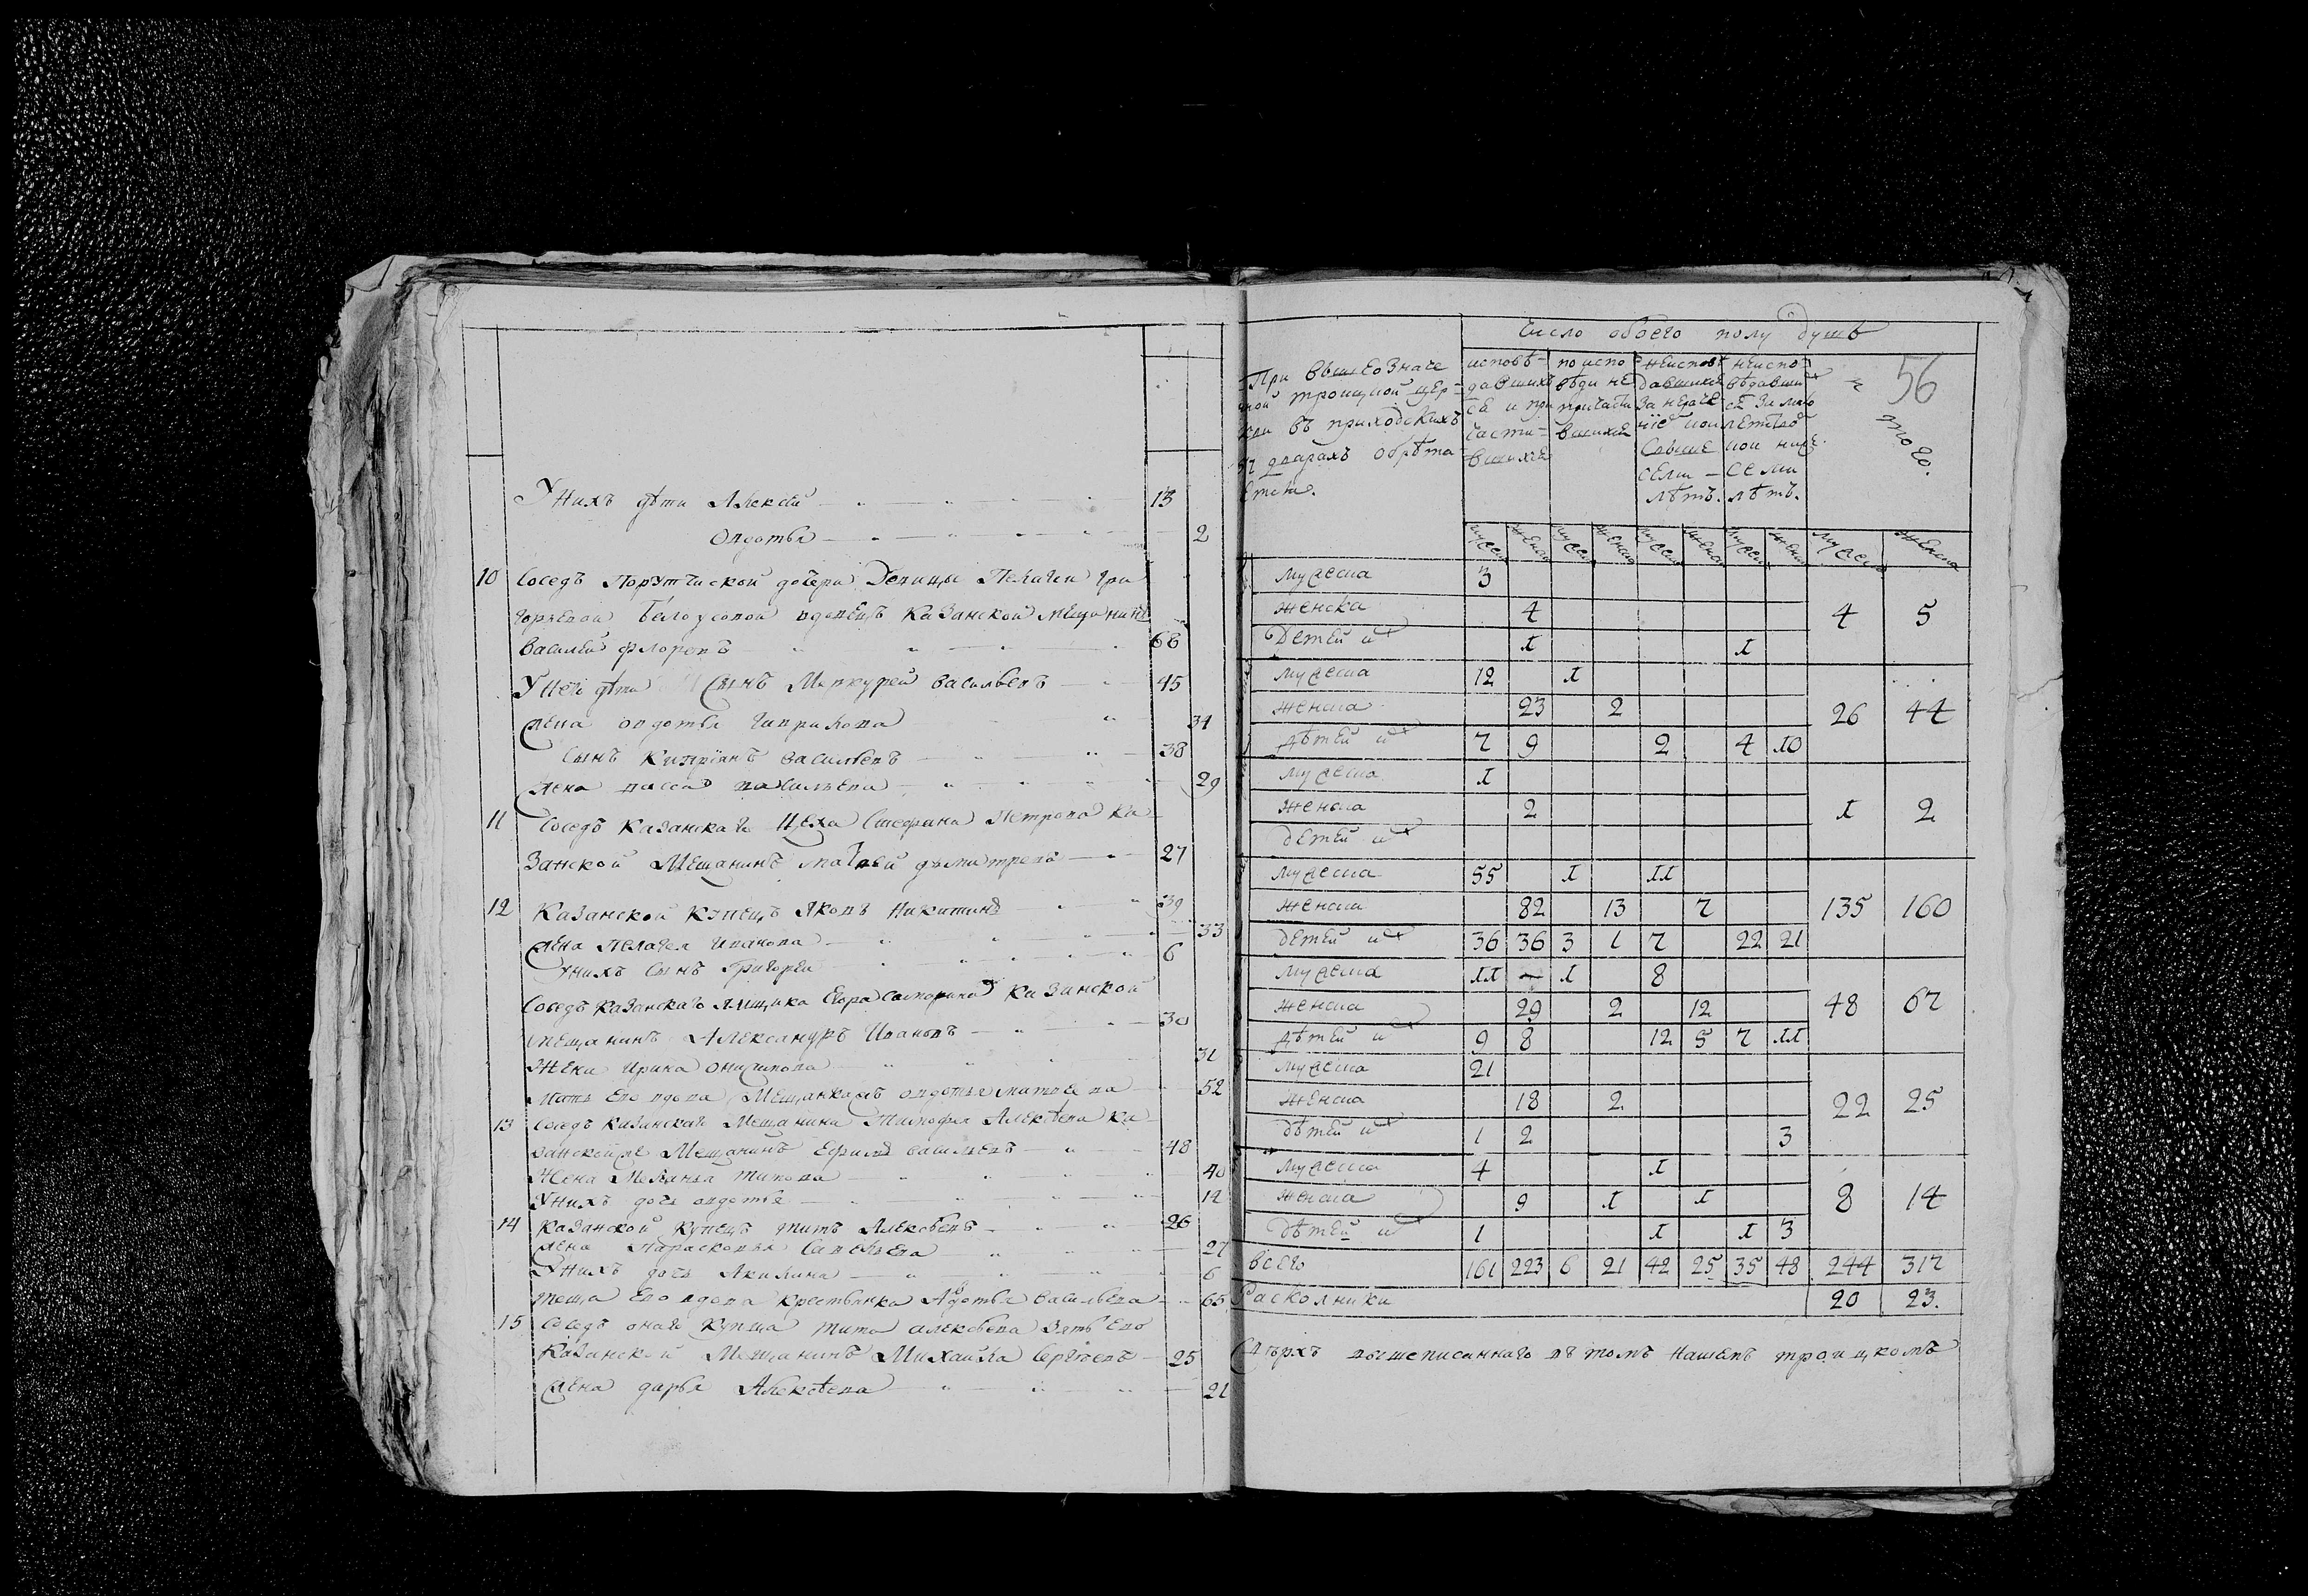 Унихъ дѣти Алексѣй 13
Овдотья 2
10 Соседъ Порутчиской дочери Девицы Пелагеи Гри
горьевой Белоусовой вдовецъ Казанской мещанинъ
Василей Флоровъ 68
У него дѣти Сынъ Меркурей Васильевъ 45
Жена Овдотья Гаврилова 31
Сынъ Кипріянъ Васильевъ 38
Жена Васильева 29
11 Соседъ Казанскаго Цеха Стефана Петрова Ка
занской Мещанинъ Матвей Дьмитревъ 27
12 Казанской Купецъ Яковъ Никитинъ 39
Жена Пелагея Иванова 33
Унихъ Сынъ Григорей 6
Соседъ Казанскаго Ямщика Егора Казанской
Мещанинъ Александръ Ивановъ 30
Жена Ирина 31
Мать Ево вдова Мещанка Овдотья Матвеева 52
13 Соседъ Казанскаго Мещанина Тимофея Алексѣева Ка
занской же Мещанинъ Ефимъ Васильевъ 48
Жена Меланья Титова 40
Унихъ дочь Овдотья 12
14 Казанской Купецъ Титъ Алексѣевъ 26
Жена Парасковья Савельева 27
Унихъ дочь Акилина 6
теща Ево вдова крестьянка Авдотья Васильева 65
15 Соседъ онаго Купца Тита Алексѣева Зять Ево
Казанской Мещанинъ Михайла Сергѣевъ 25
Жена Дарья Алексѣева 21
Число обоего полу душъ
56
При вышеозначе
ной троицкой цер-
кви въ приходскихъ
дворахъ обрѣта
ется.
исповѣ-
давшихъ
ся и при
части-
вшихся
по испо
вѣди не
причасти
вшихся
неисповѣ
давшихся
за нераче
ніе
Свыше
Семи
лѣтъ.
неиспо-
вѣдавши
ся за мало
летство
ниже
Семи
лѣтъ.
того.
мужеска женска мужеска женска мужеска женска мужеска женска мужеска женска
мужеска 3
женска 4 4 5
Детей их 1 1
мужеска 12 1
женска 23 2 26 44
дѣтей их 7 9 2 4 10
мужеска 1
женска 2 1 2
детей их
мужеска 55 1 11
женска 82 13 7 135 160
детей их 36 36 3 1 7 22 21
мужеска 11 1 8
женска 29 2 12 48 67
дѣтей их 9 8 12 5 7 11
мужеска 21
женска 18 2 22 25
дѣтей их 1 2 3
мужеска 4 1
женска 9 1 1 8 14
дѣтей их 1 1 1 3
Всего 161 223 6 21 42 25 35 48 244 317
Расколники 20 23.
Сверхъ вышеписаннаго въ томъ нашемъ троицкомъ